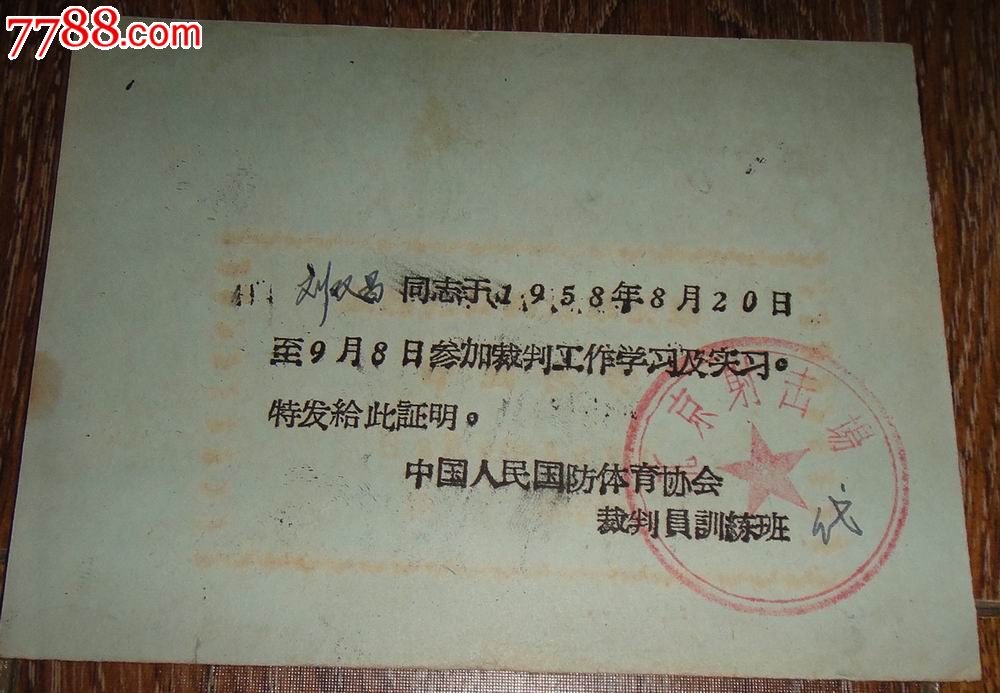 7788.com
刘双昌 同志于1958年8月20日
至9月8日参加裁判工作学习及实习。
特发給此証明。
中国人民国防体育协会
裁判員訓練班 代
北京射击場